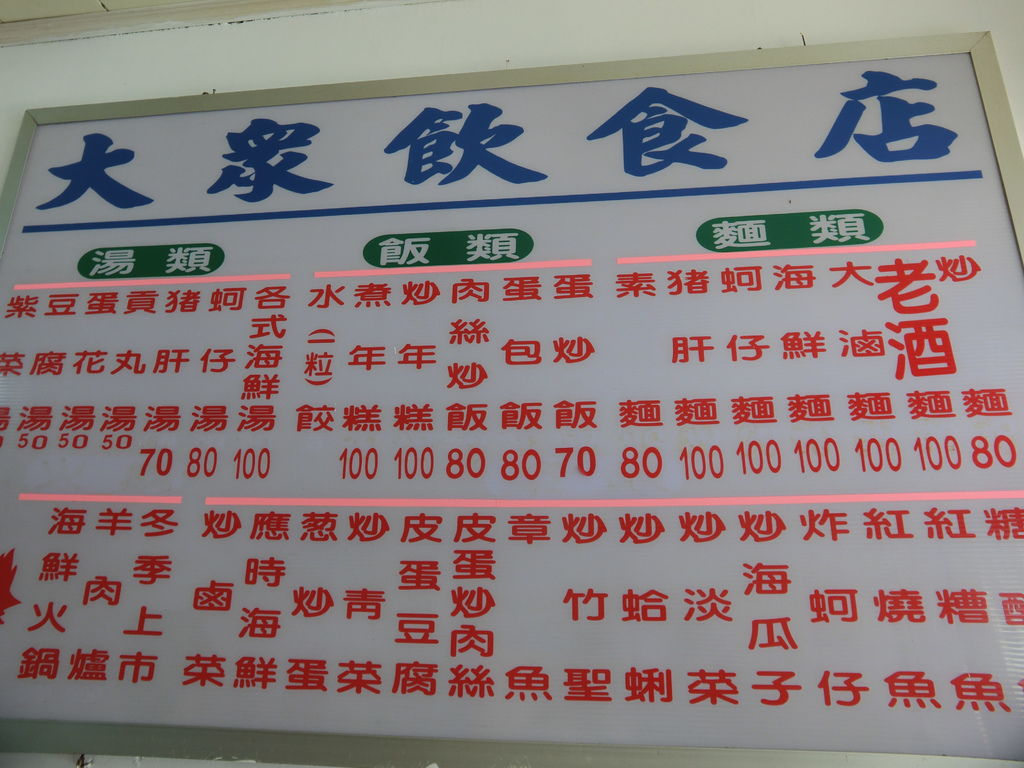 大眾飲食店
湯類
紫菜湯
豆腐湯 50
蛋花湯 50
貢丸湯 50
猪肝湯 70
蚵仔湯 80
各式海鮮湯 100
飯類
水(一粒)餃
煮年糕 100
炒年糕 100
肉絲炒飯 80
蛋包飯 80
蛋炒飯 70
麵類
素麵 80
猪肝麵 100
蚵仔麵 100
海鮮麵 100
大滷麵 100
老酒麵 100
炒麵 80
海鮮火鍋
羊肉爐
冬季上市
炒鹵菜
應時海鮮
葱炒蛋
炒青菜
皮蛋豆腐
皮蛋炒肉絲
章魚
炒竹聖
炒蛤蜊
炒淡菜
炒海瓜子
炸蚵仔
紅燒魚
紅糟魚
糖醋